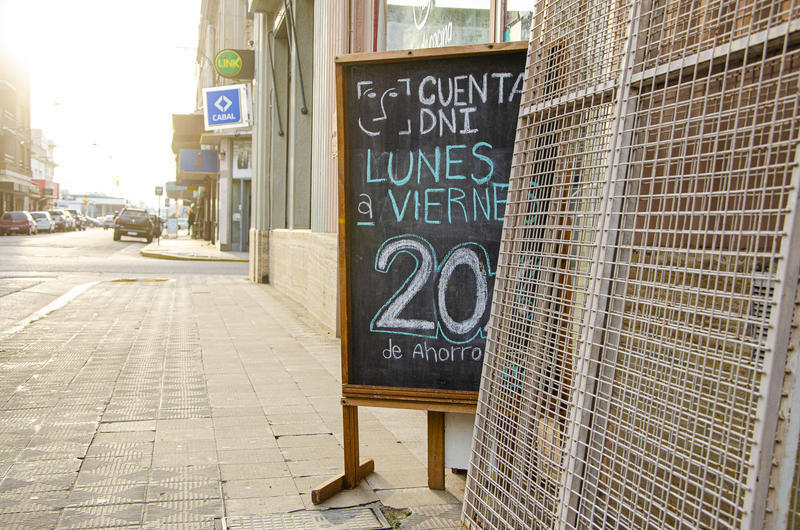 LINK
CABAL
CUENTA
DNI
LUNES
a VIERNE
20
de Ahorro